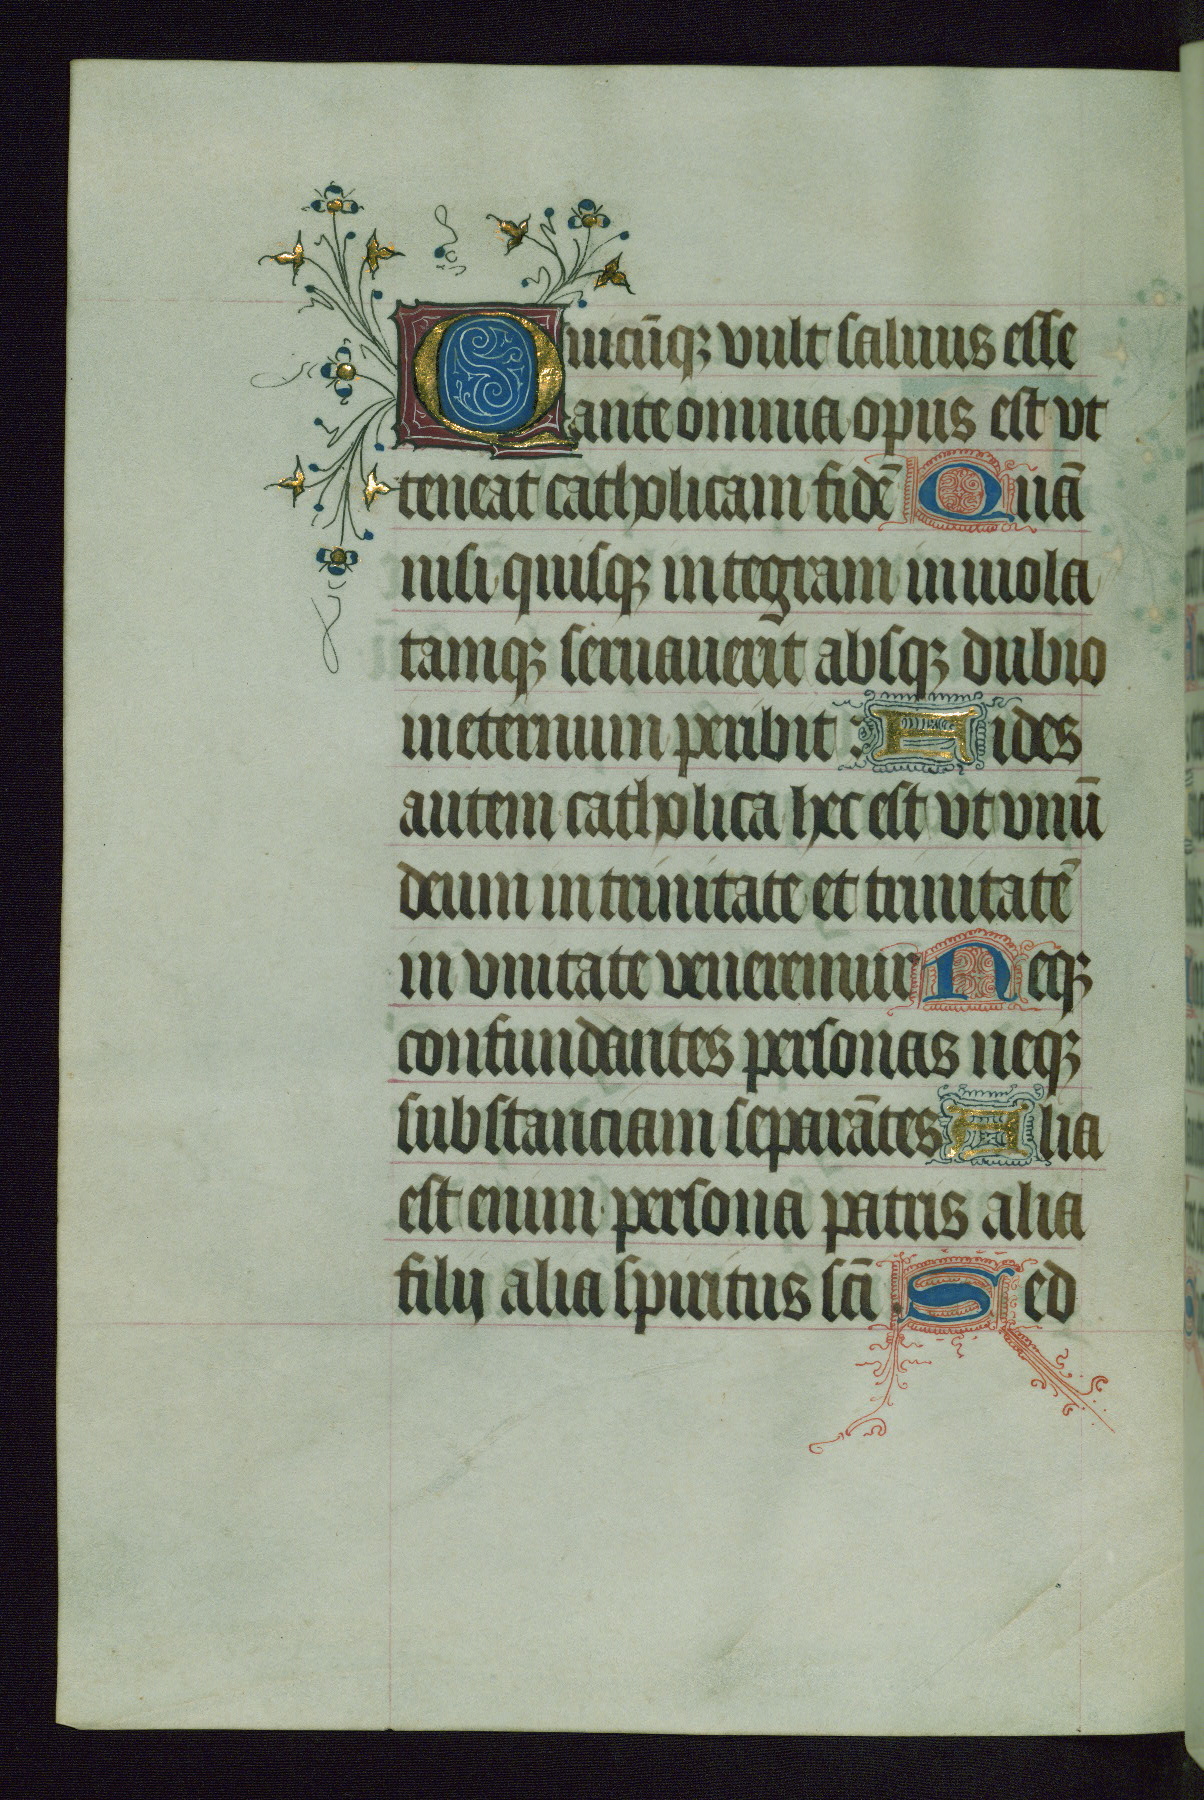 Quicūqꝫ vult saluus esse
ante omnia opus est vt
teneat catholicam fidē Quā
nisi quisqꝫ integram inuiola
tamqꝫ seruauerit absqꝫ dubio
in eternum peribit : Fides
autem catholica hec est vt vnū
deum in trinitate et trinitatē
in vnitate veneremur Neqꝫ
confundantes personas neqꝫ
substanciam separātes Alia
est enim persona patris alia
filij alia spiritus scī Sed